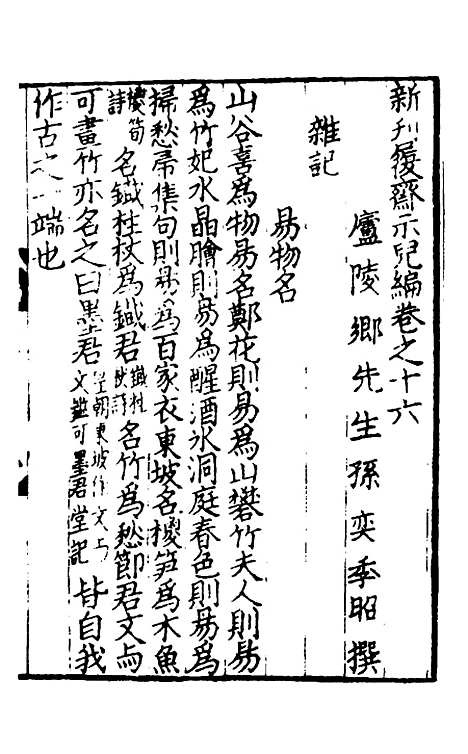 新刋履齋示兒編卷之十六
廬陵鄉先生孫奕季昭撰
雜記
易物名
山谷喜爲物易名鄭花則易爲山礬竹夫人則易
爲竹妃水晶膾則易爲醒酒氷洞庭春色則易爲
掃愁帚集句則易爲百家衣東坡名椶笋爲木魚
椶筍詩名鐵柱杖爲鐵君鐵柱杖詩名竹爲愁節君文與
可畫竹亦名之曰墨君皇朝東坡作文與可墨君堂記皆自我
作古之一端也